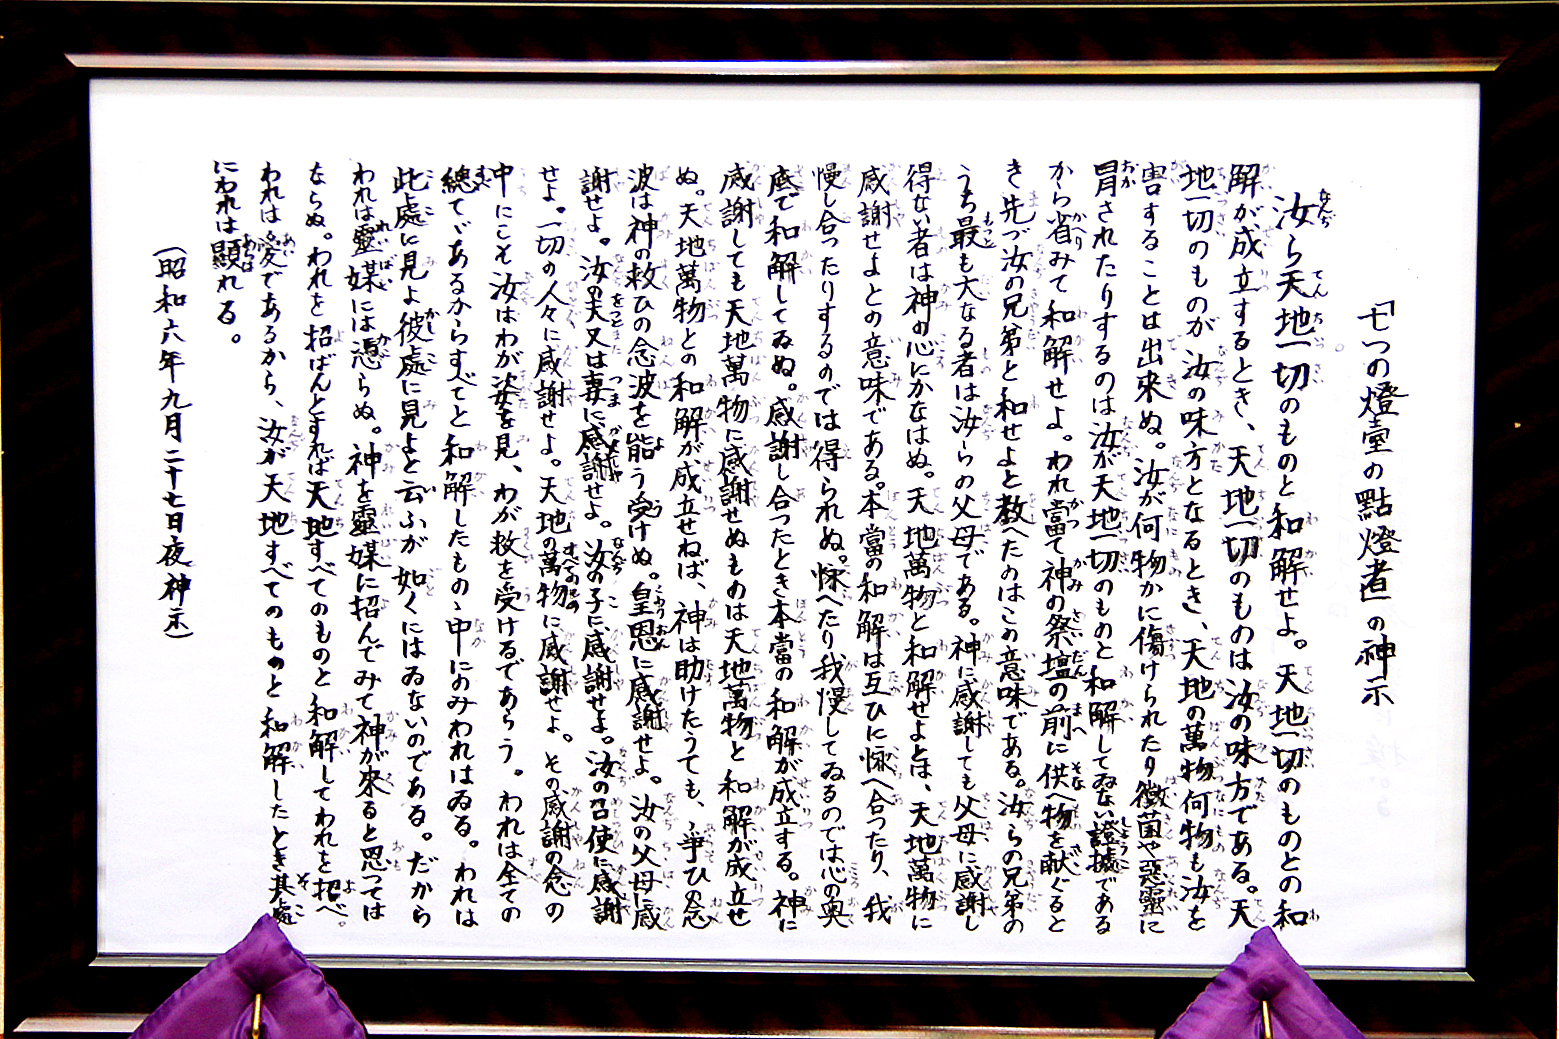 「七つの燈臺の點燈者」の神示
汝ら天地一切のものと和解せよ。天地一切のものとの和
解が成立するとき、天地一切のものは汝の味方である。天
地一切のものが汝の味方となるとき、天地の萬物何物も汝を
害することは出來ぬ。汝が何物かに傷けられたり黴菌や惡靈に
冒されたりするのは汝が天地一切のものと和解してゐない證據である
から省みて和解せよ。われ嘗て神の祭壇の前に供へ物を献ぐると
き先づ汝の兄弟と和せよと教へたのはこの意味である。汝らの兄弟の
うち最も大なる者は汝らの父母である。神に感謝しても父母に感謝し
得ない者は神の心にかなはぬ。天地萬物と和解せよとは、天地萬物に
感謝せよとの意味である。本當の和解は互ひに怺へ合ったり、我
慢し合ったりするのでは得られぬ。怺へたり我慢してゐるのでは心の奥
底で和解してゐぬ。感謝し合ったとき本當の和解が成立する。神に
感謝しても天地萬物に感謝せぬものは天地萬物と和解が成立せ
ぬ。天地萬物との和解が成立せねば、神は助けたうても、爭ひの念
波は神の救ひの念波を能う受けぬ。皇恩に感謝せよ。汝の父母に感
謝せよ。汝の夫又は妻に感謝せよ。汝の子に感謝せよ。汝の召使に感謝
せよ。一切の人々に感謝せよ。天地の萬物に感謝せよ。その感謝の念の
中にこそ汝はわが姿を見、わが救を受けるであらう。われは全ての
總てゞあるからすべてと和解したものゝ中にのみわれはゐる。われは
此處に見よ彼處に見よと云ふが如くにはゐないのである。だから
われは靈媒には憑らぬ。神を靈媒に招んでみて神が來ると思っては
ならぬ。われを招ばんとすれば天地すべてのものと和解してわれを招べ。
われは愛であるから、汝が天地すべてのものと和解したとき其處
にわれは顯れる。
（昭和六年九月二十七日夜神示）